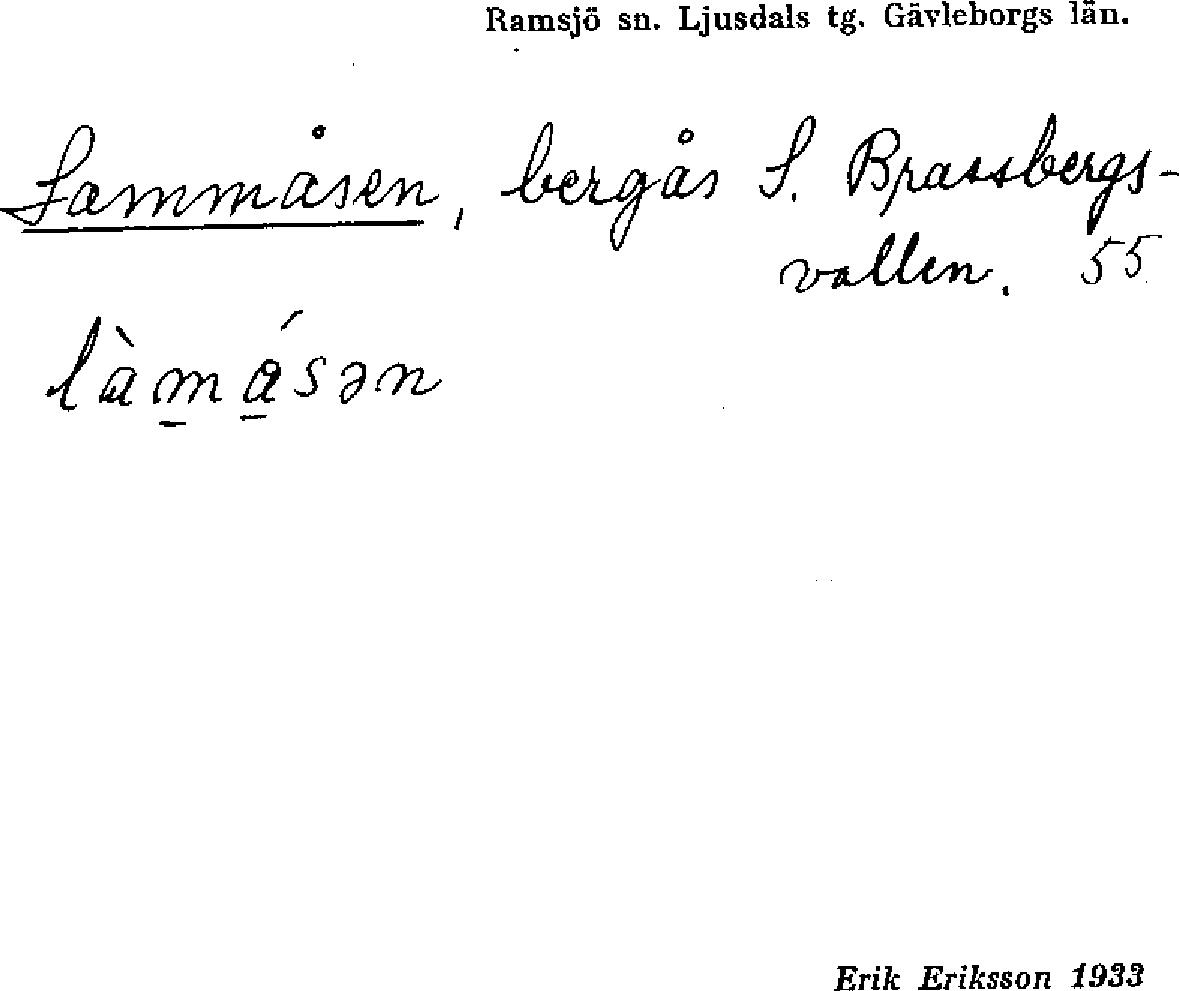 Ramsjö sn. Ljusdals tg. Gävleborgs län.
Lammåsen, bergås S. Brassbergs-
vallen. 55
làm̠ǻ̠sən
Erik Eriksson 1933